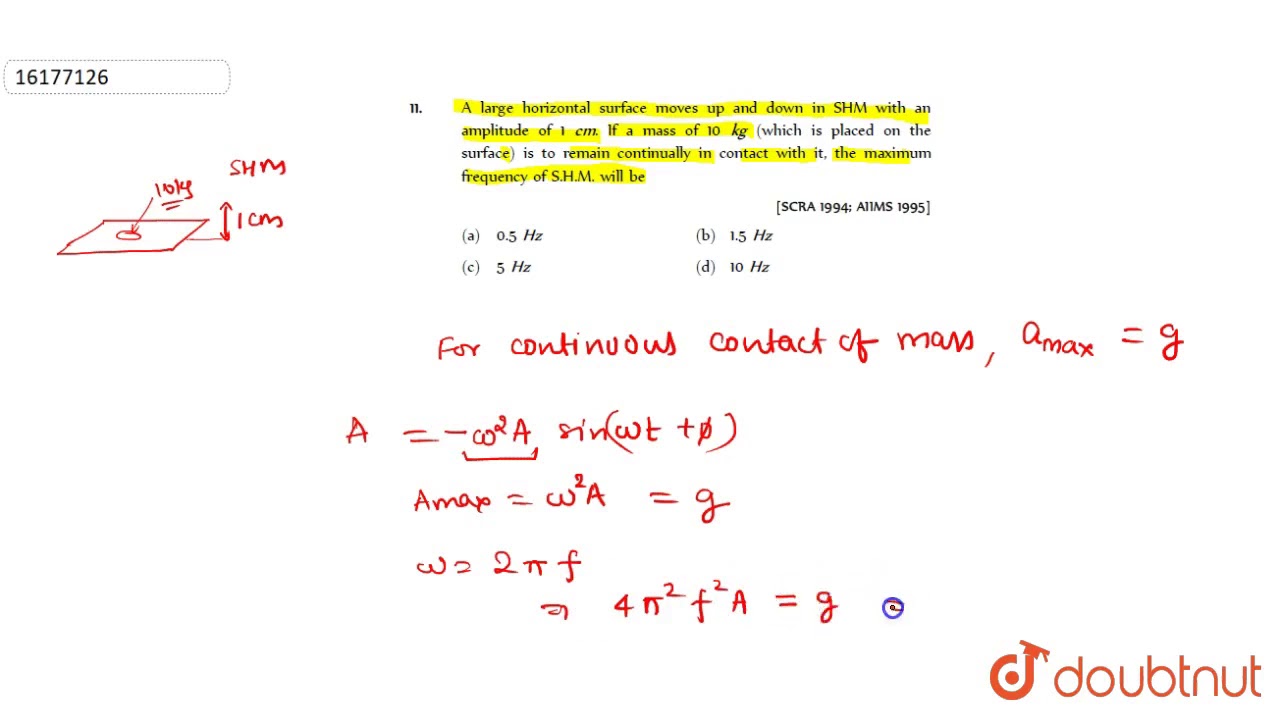 16177126
11. A large horizontal surface moves up and down in SHM with an
amplitude of 1 cm. If a mass of 10 kg (which is placed on the
surface) is to remain continually in contact with it, the maximum
frequency of S.H.M. will be
[SCRA 1994; AIIMS 1995]
(a) 0.5 Hz (b) 1.5 Hz
(c) 5 Hz (d) 10 Hz
SHM
10kg
1cm
For continuous contact of mass, amax = g
A = -ω²A sin(ωt + φ)
Amax = ω²A = g
ω = 2πf
⇒ 4π²f²A = g
doubtnut